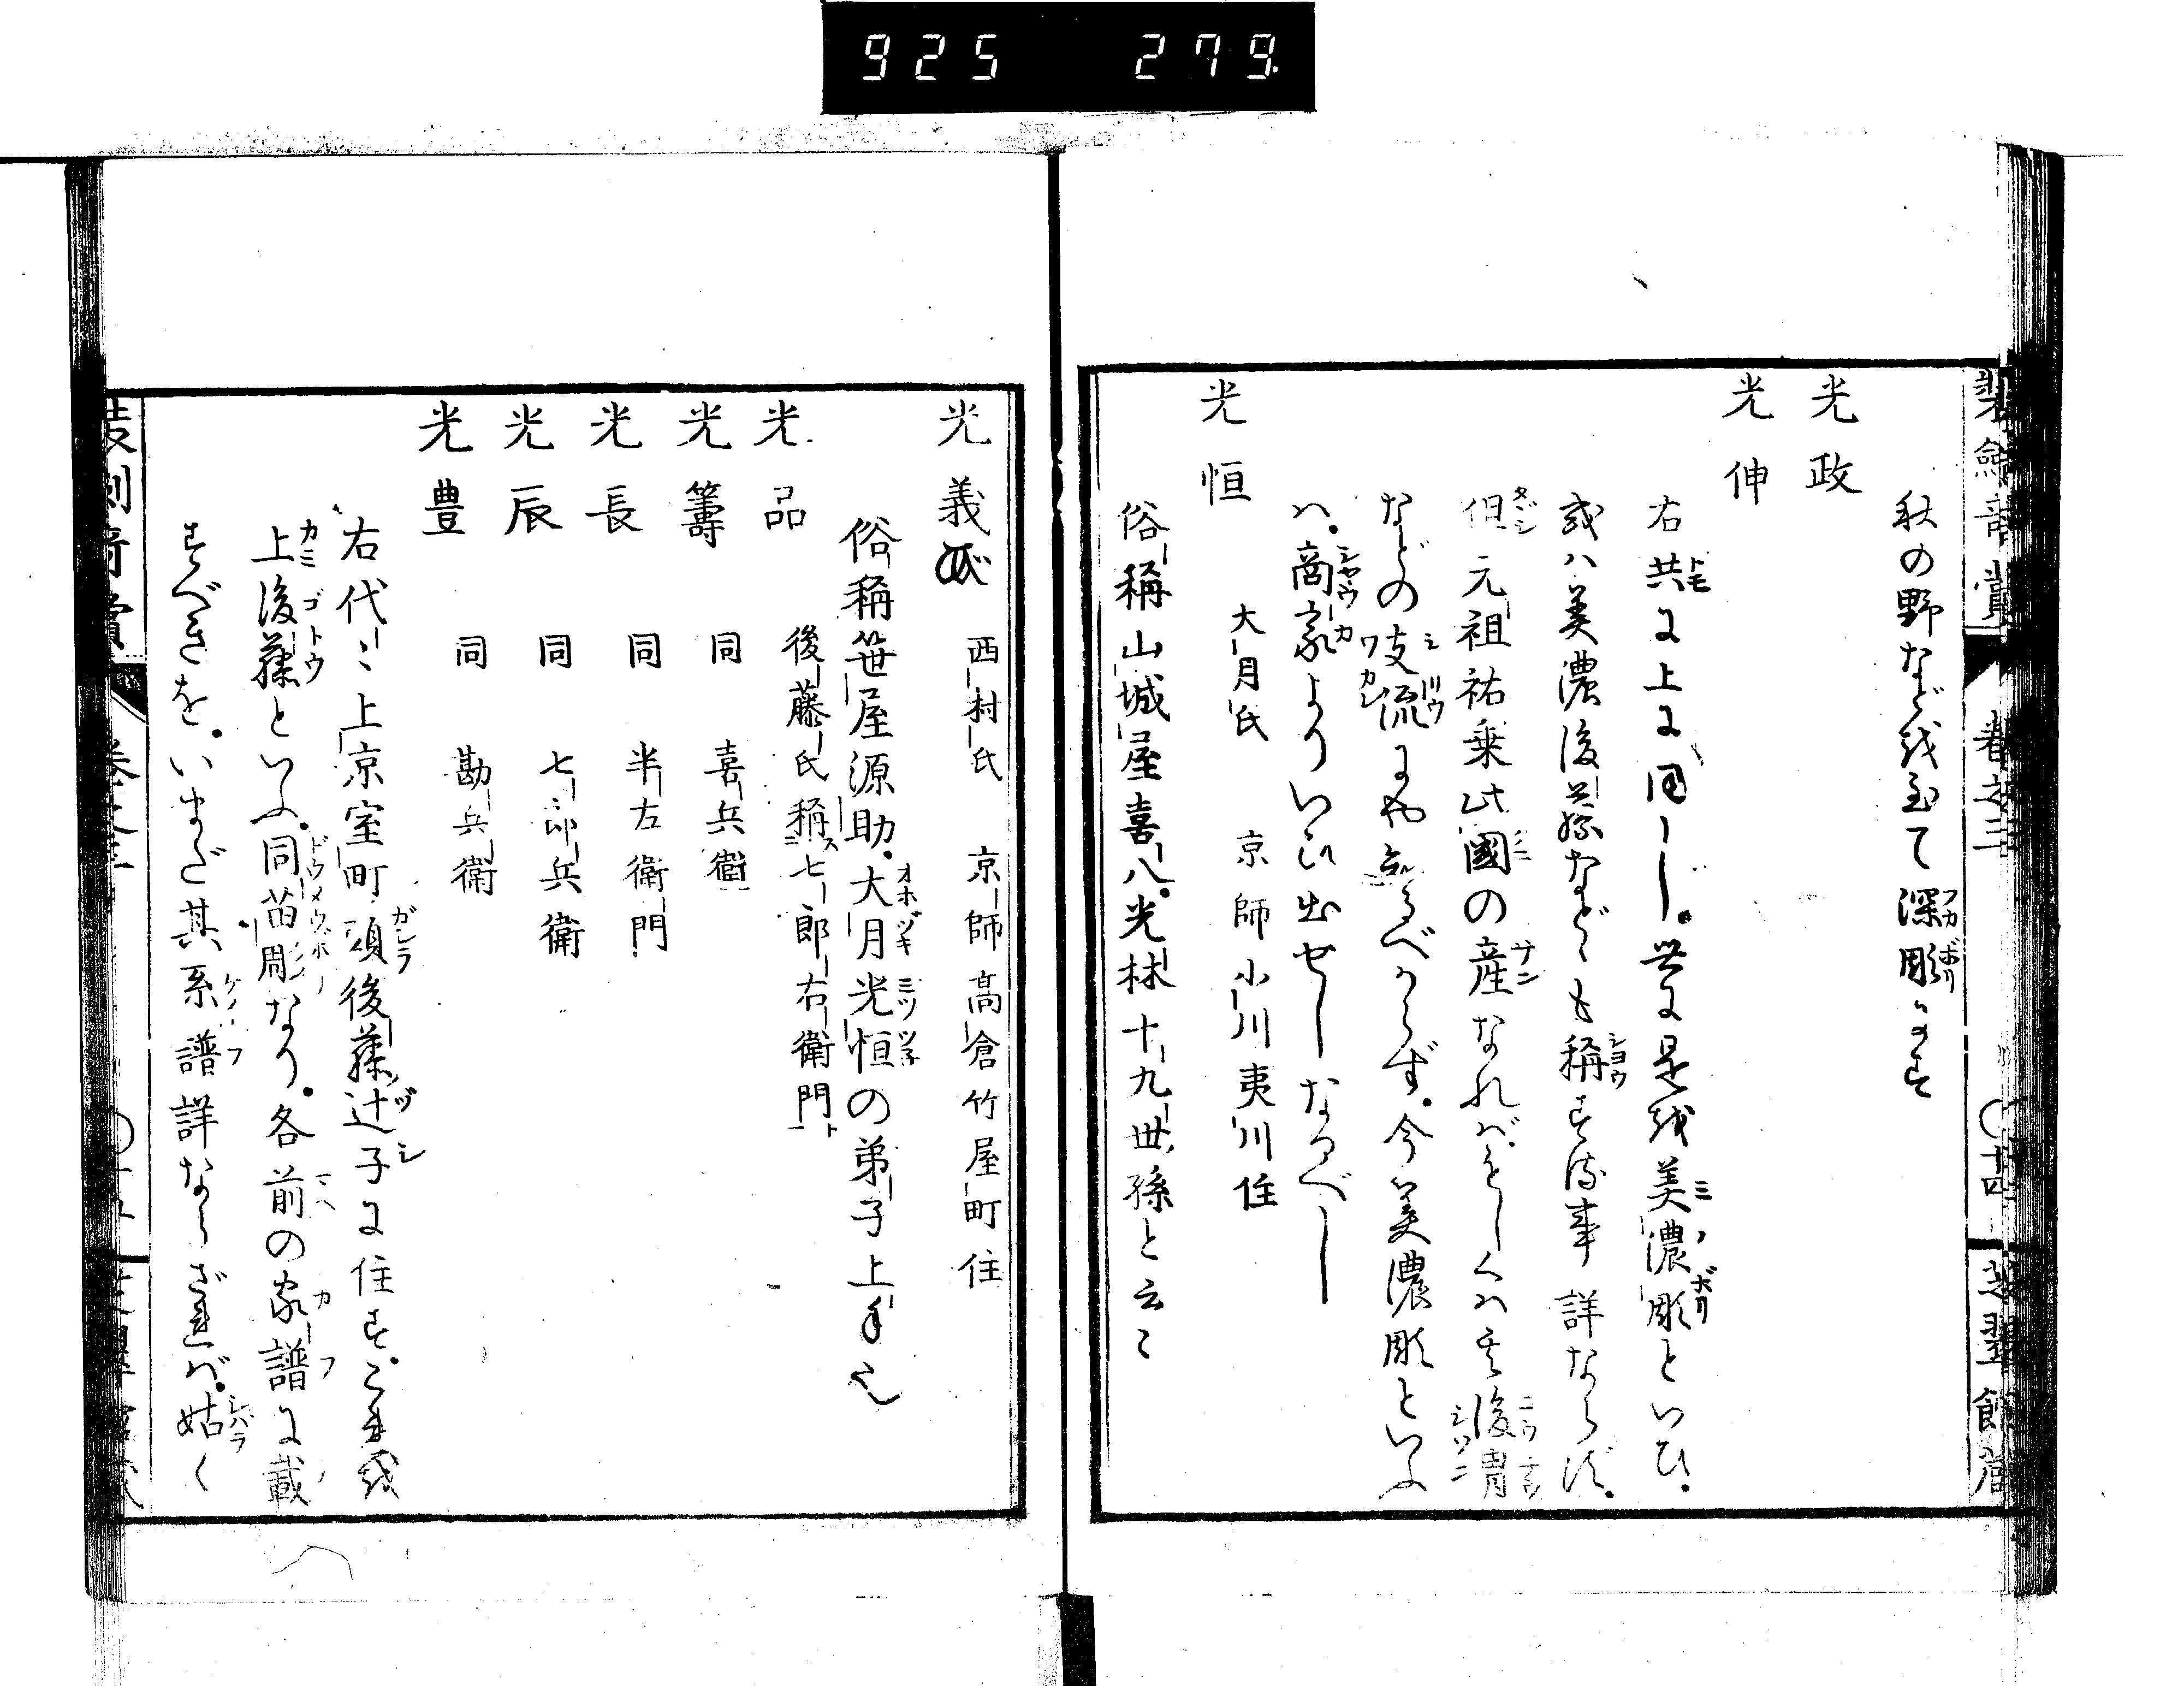 925 279.
秋の野など越至て深彫にす
光政
光伸
右共に上に同じ。世に是越美濃彫といひ。
或ハ美濃後藤などゝも稱する事詳ならず。
但元祖祐乗此國の産なれバもしくハ其後胄
などの支流にや知るべからず。今美濃彫といふ
ハ。商家よりいひ出せしなるべし
光恒 大月氏 京師小川夷川住
俗稱山城屋喜八。光林十九世孫と云々
光義 西村氏 京師高倉竹屋町住
俗稱笹屋源助。大月光恒の弟子上手也
光品 後藤氏稱七郎右衛門
光籌 同 喜兵衛
光長 同 半左衛門
光辰 同 七郎兵衛
光豊 同 勘兵衛
右代々上京室町頭後藤辻子に住す。これ越
上後藤といふ。同苗彫なり。各前の家譜に載
すべきを。いまだ其系譜詳ならざれバ。姑く